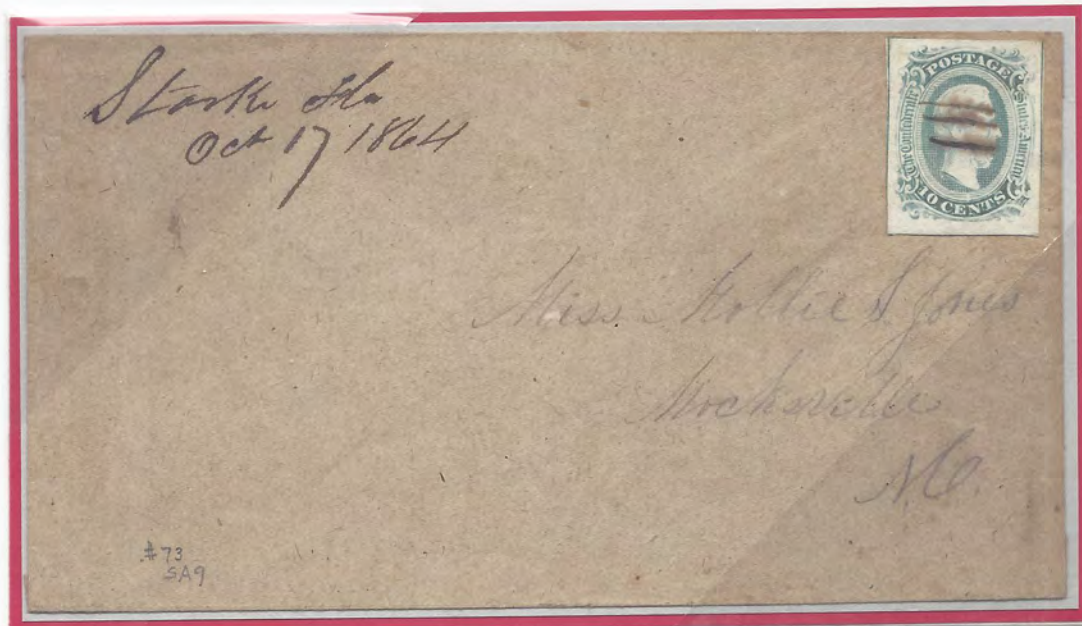 Starke Fla
Oct 17 1864
POSTAGE
The Confederate States America
10 CENTS
Miss Mollie S. Jones
Mocksville
N.C.
#73
SA9